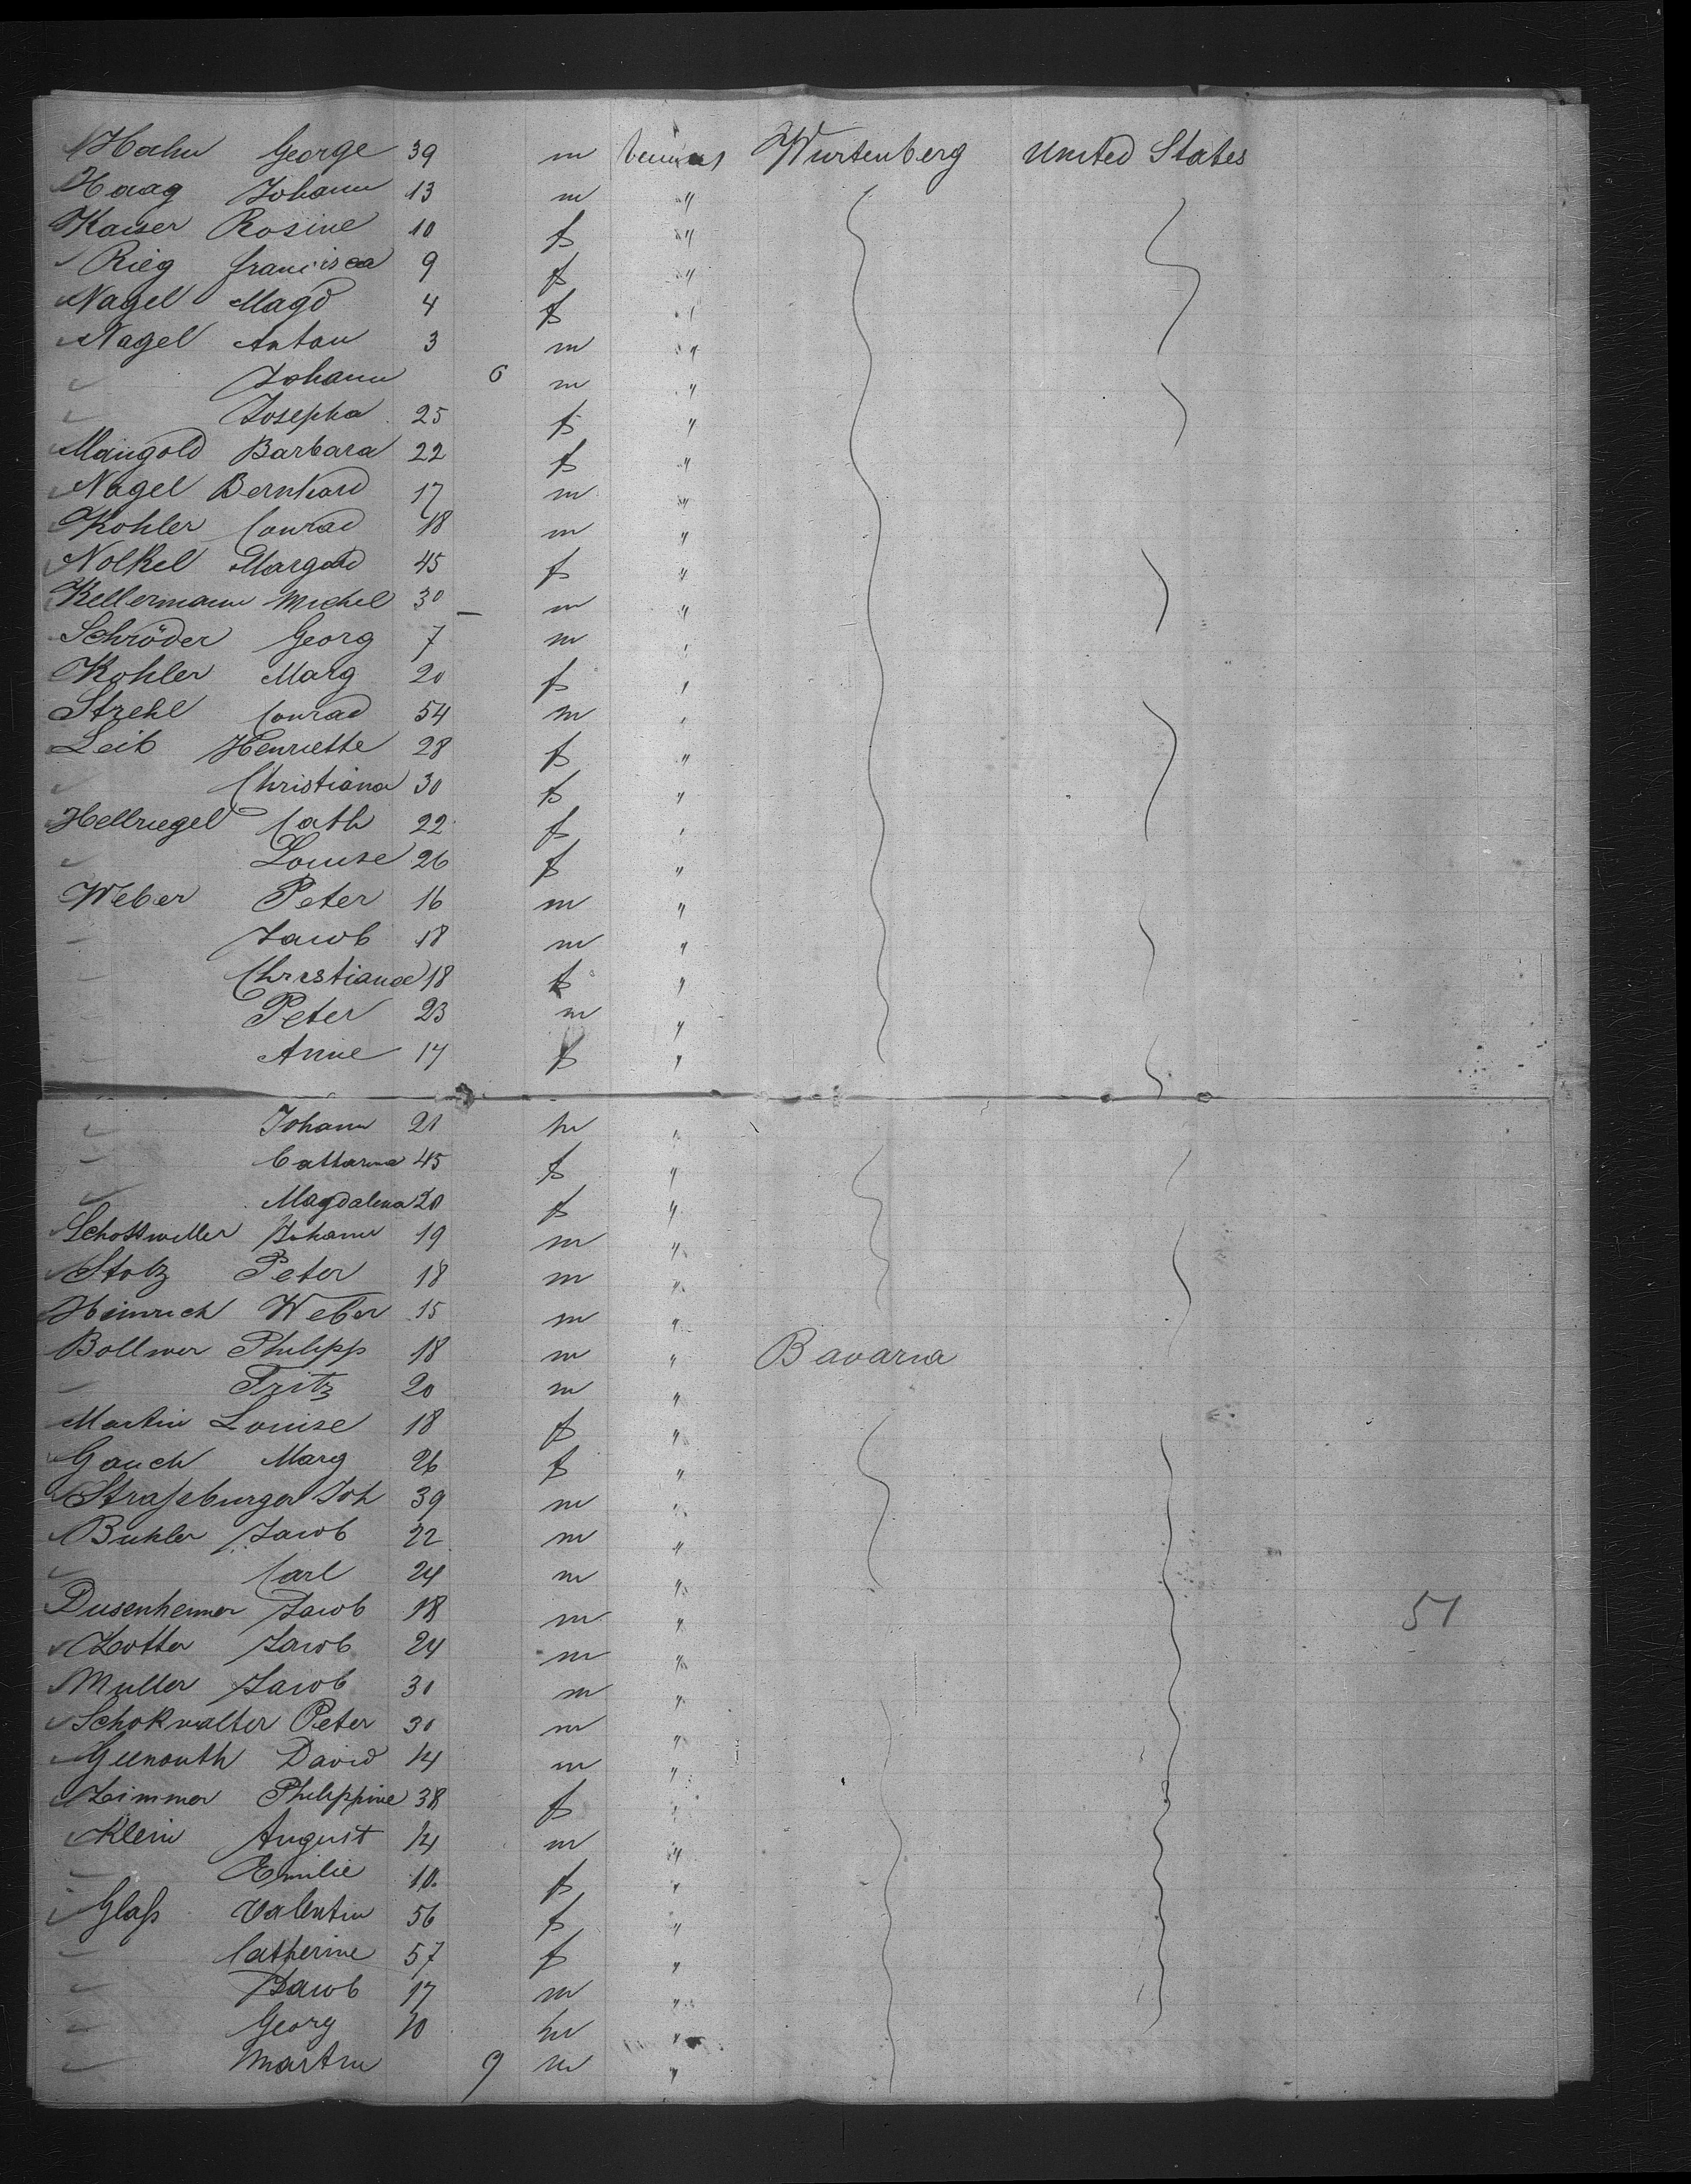 Hahn George 39 m Wurtenberg United States
Haag Johann 13 m "
Kaiser Rosine 10 f "
Rieg francisca 9 f "
Nagel Magd 4 f "
Nagel Anton 3 m "
Johann 6 m "
Josepha 25 f "
Mangold Barbara 22 f "
Nagel Bernhard 17 m "
Kohler Conrad 18 m "
Nolkel 45 f "
Kellermann Michel 30 m "
Schröder Georg 7 m "
Kohler Marg 20 f "
Strehl Conrad 54 m "
Leib Henriette 28 f "
Christiana 30 f "
Hellriegel Cath 22 f "
Louise 26 f "
Weber Peter 16 m "
Jacob 18 m "
Christiana 18 f "
Peter 23 m "
Anne 14 f "
Johann 21 m "
Catharina 45 f "
Magdalena 20 f "
Johann 19 m "
Stolz Peter 18 m "
Heinrich Weber 15 m "
Bollmer Philipp 18 m " Bavaria
Fritz 20 m "
Martin Louise 18 f "
Gauch Marg 26 f "
Straßburger Joh 39 m "
Buhler Jacob 22 m "
Carl 24 m "
Dusenhemer Jacob 18 m " 51
Zotter Jacob 24 m "
Muller Jacob 30 m "
Schokwalter Peter 30 m "
David 14 m "
Zimmer Philippine 38 f "
Klein August 14 m "
Emilie 10 f "
Glaß Valentin 56 f "
Catherine 57 f "
Jacob 17 m "
Georg 10 m "
Martin 9 m "